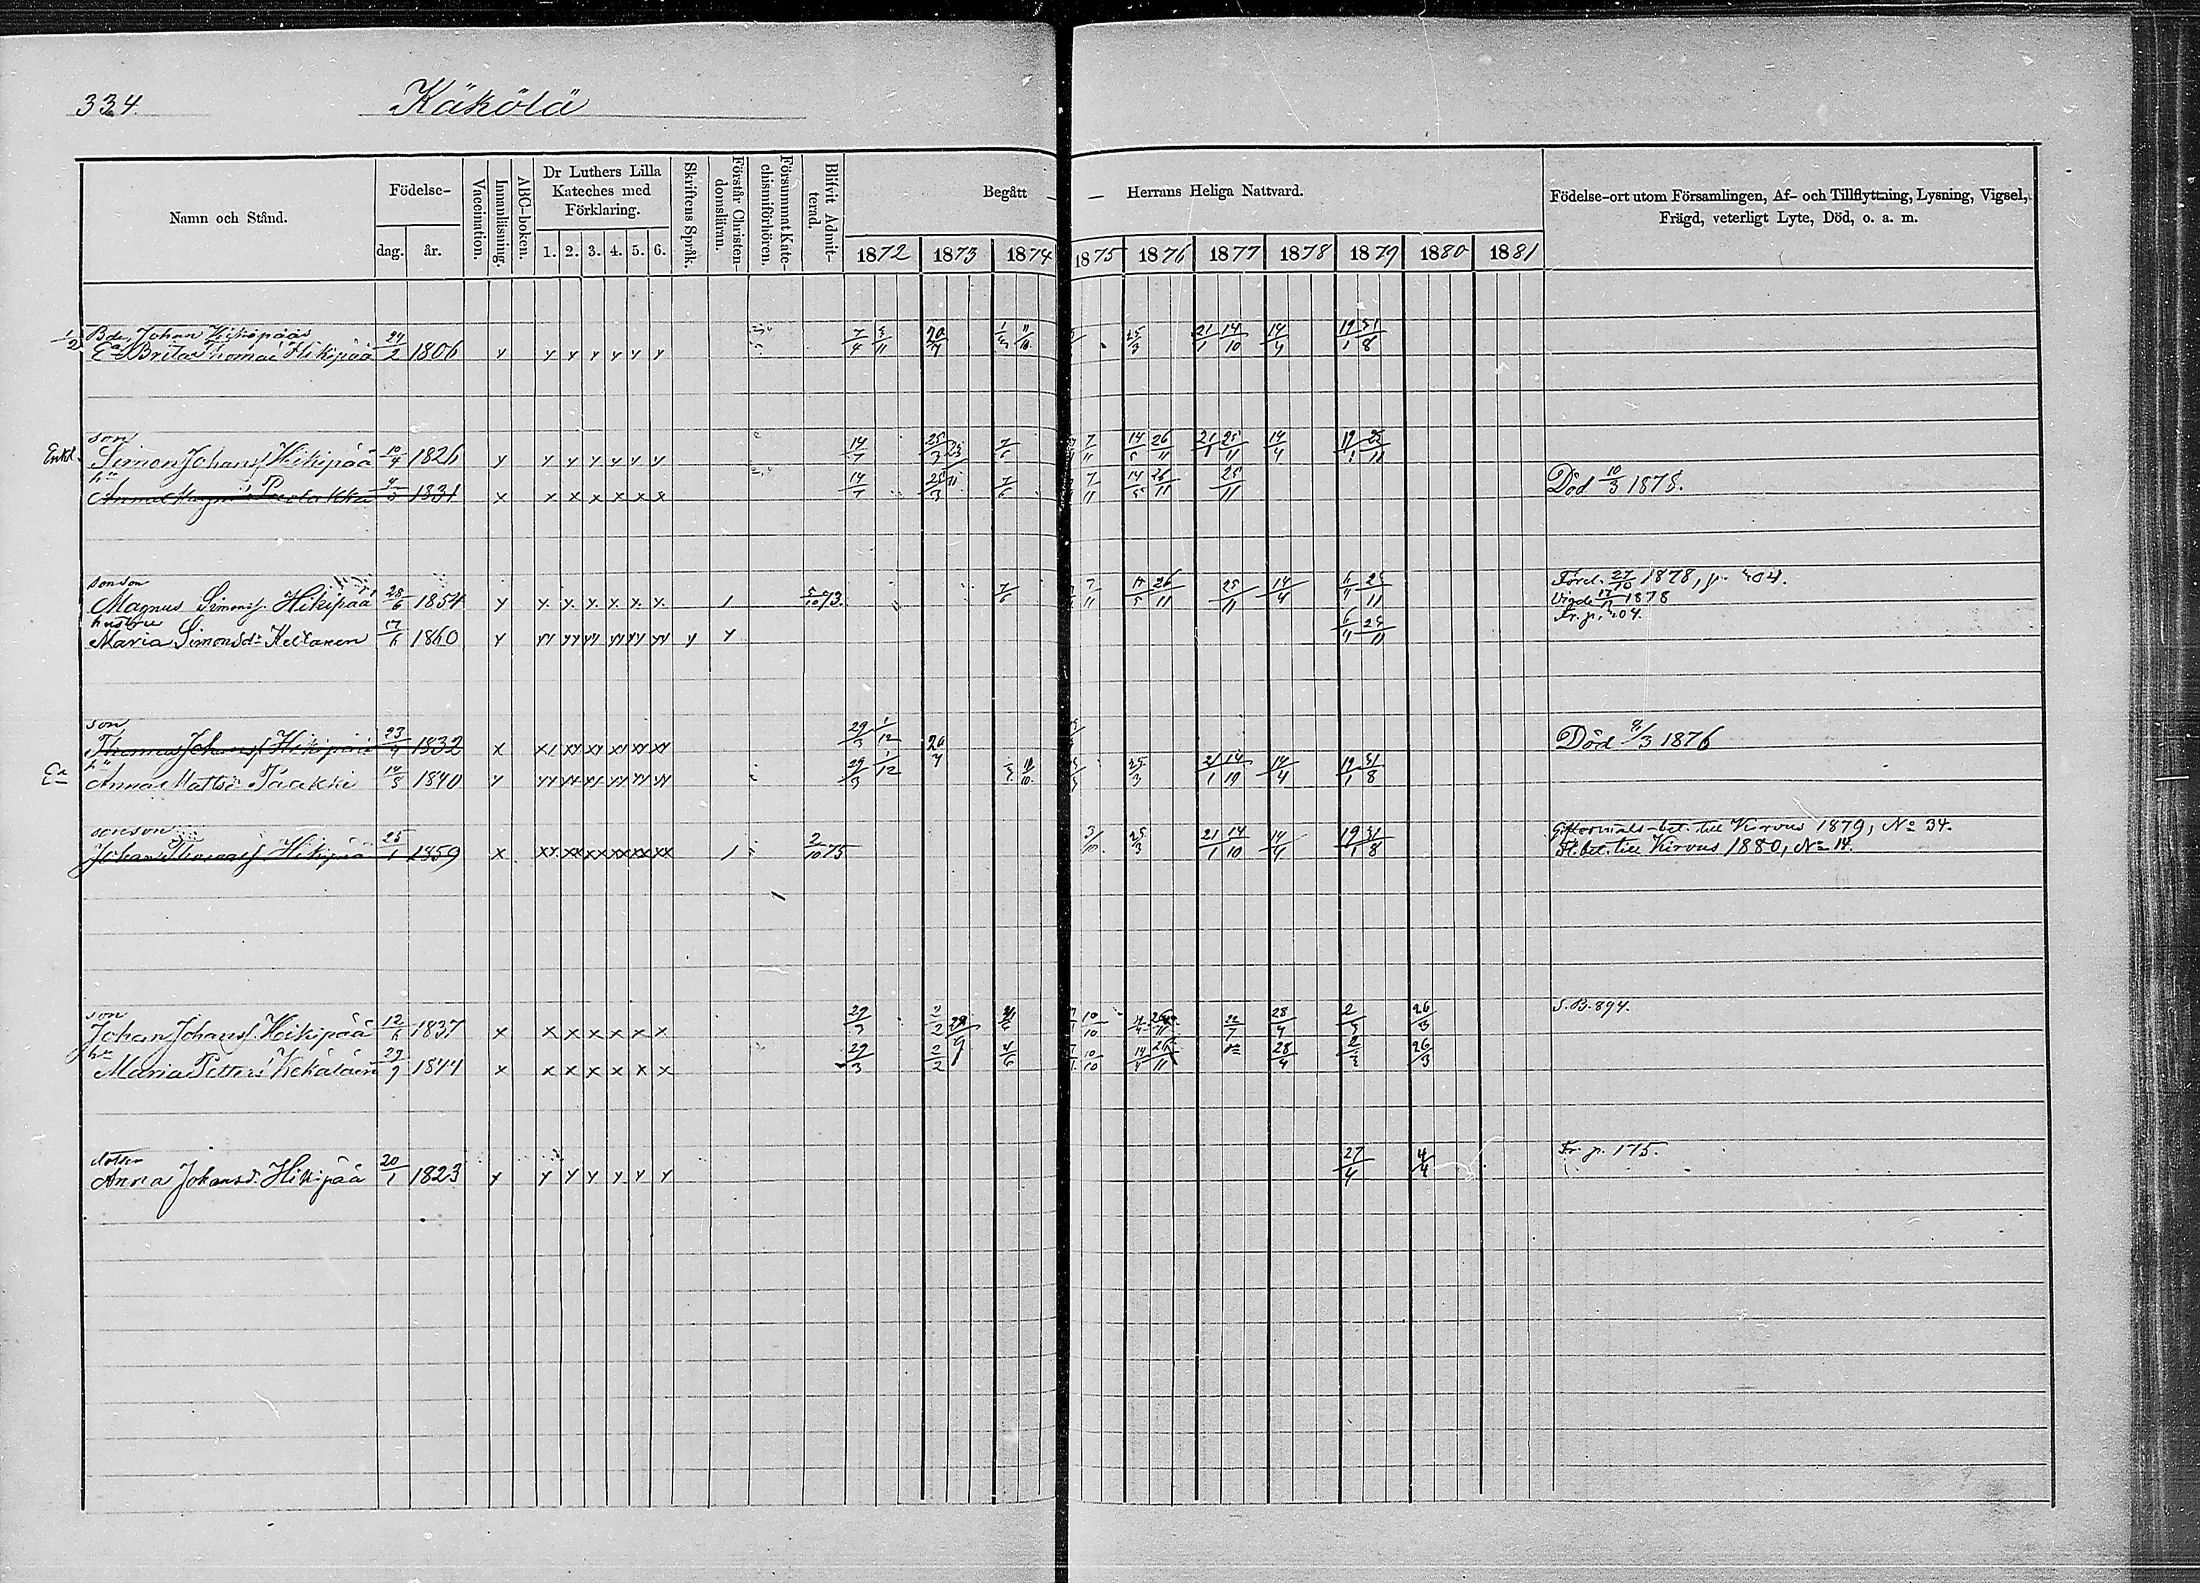 334. Käkölä
Namn och Stånd. Födelse- dag. år. Vaccination. Innanläsning. ABC-boken. Dr Luthers Lilla Kateches med Förklaring. 1. 2. 3. 4. 5. 6. Skriftens Språk. Förstår Christendomsläran. Försummat Katechismiförhören. Blifvit Admitterad. Begått — Herrans Heliga Nattvard. 1872 1873 1874 1875 1876 1877 1878 1879 1880 1881 Födelse-ort utom Församlingen, Af- och Tillflyttning, Lysning, Vigsel, Frägd, veterligt Lyte, Död, o. a. m.
1/2 Bde Johan Hikipääs
Ea Brita Thomae Hikipää 24/2 1806 y y y y y y y 7/4 3/11 20/4 25/3 21/1 14/10 14/4 19/1 31/8
son
Enkl. Simon Johans Hikipää 10/4 1826 y y y y y y y 14/7 25/3 7/6 7/11 14/5 26/11 21/1 25/11 14/4 19/1 25/11
hu
Anna 1831 x x x x x x x 14/7 25/3 7/6 7/11 14/5 26/11 25/11 Död 10/3 1878.
sonson
Magnus Simons Hikipää 28/6 1854 y y y y y y y 1 5/10 73. 7/6 7/11 14/5 26/11 25/11 14/4 6/4 25/11 Förel. 27/10 1878, p. 404.
Vigde 17/11 1878
hustru
Maria Simonsdr Keltanen 17/6 1860 y yy yy yy yy yy yy y y 6/4 25/11 Fr. p. 404.
son
Thomas Johans Hikipää 23/4 1832 x xx xx xx xx xx xx 29/3 1/12 20/4 Död 9/3 1876
hu
Ea Anna Mattsd Paakki 14/3 1840 y yy yy yy yy yy yy 29/3 1/12 25/3 21/1 14/10 14/4 19/1 31/8
sonson
Johan Thomas Hikipää 25/1 1859 x xx xx xx xx xx xx 1 2/10 75 3/10 25/3 21/1 14/10 14/4 19/1 31/8 Giftermåls-bet. till Kirvus 1879, No 34.
Fl. bet. till Kirvus 1880, No 14.
son
Johan Johans Hikipää 12/6 1837 x x x x x x x 29/3 2/2 10/10 22/7 28/4 26/3 S.B. 894.
hu
Maria Petters Kekäläin 29/9 1844 x x x x x x x 29/3 2/2 10/10 28/4 26/3
dotter
Anna Johansd. Hikipää 20/1 1823 y y y y y y y 27/4 4/4 Fr. p. 175.